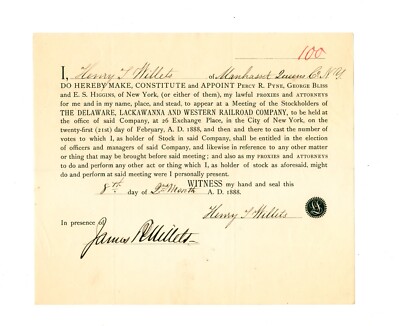 100
I, Henry T Willets of Manhasset Queens Co. N.Y.
DO HEREBY MAKE, CONSTITUTE AND APPOINT PERCY R. PYNE, GEORGE BLISS
AND E. S. HIGGINS, OF NEW YORK, (or either of them), MY LAWFUL PROXIES AND ATTORNEYS
for me and in my name, place, and stead, to appear at a Meeting of the Stockholders
of THE DELAWARE, LACKAWANNA AND WESTERN RAILROAD COMPANY, to be held
at the office of said Company, at 26 Exchange Place, in the City of New York, on
the twenty-first (21st) day of February, A. D. 1888, and then and there to cast the number
of votes to which I, as holder of Stock in said Company, shall be entitled in the election
of officers and managers of said Company, and likewise in reference to any other matter
or thing that may be brought before said meeting; and also as my PROXIES AND ATTORNEYS
to do and perform any other act or thing which I, as holder of stock as aforesaid, might
do and perform at said meeting were I personally present.
WITNESS my hand and seal this
8th day of 2nd Month A. D. 1888.
Henry T Willets
In presence of
James R Willets